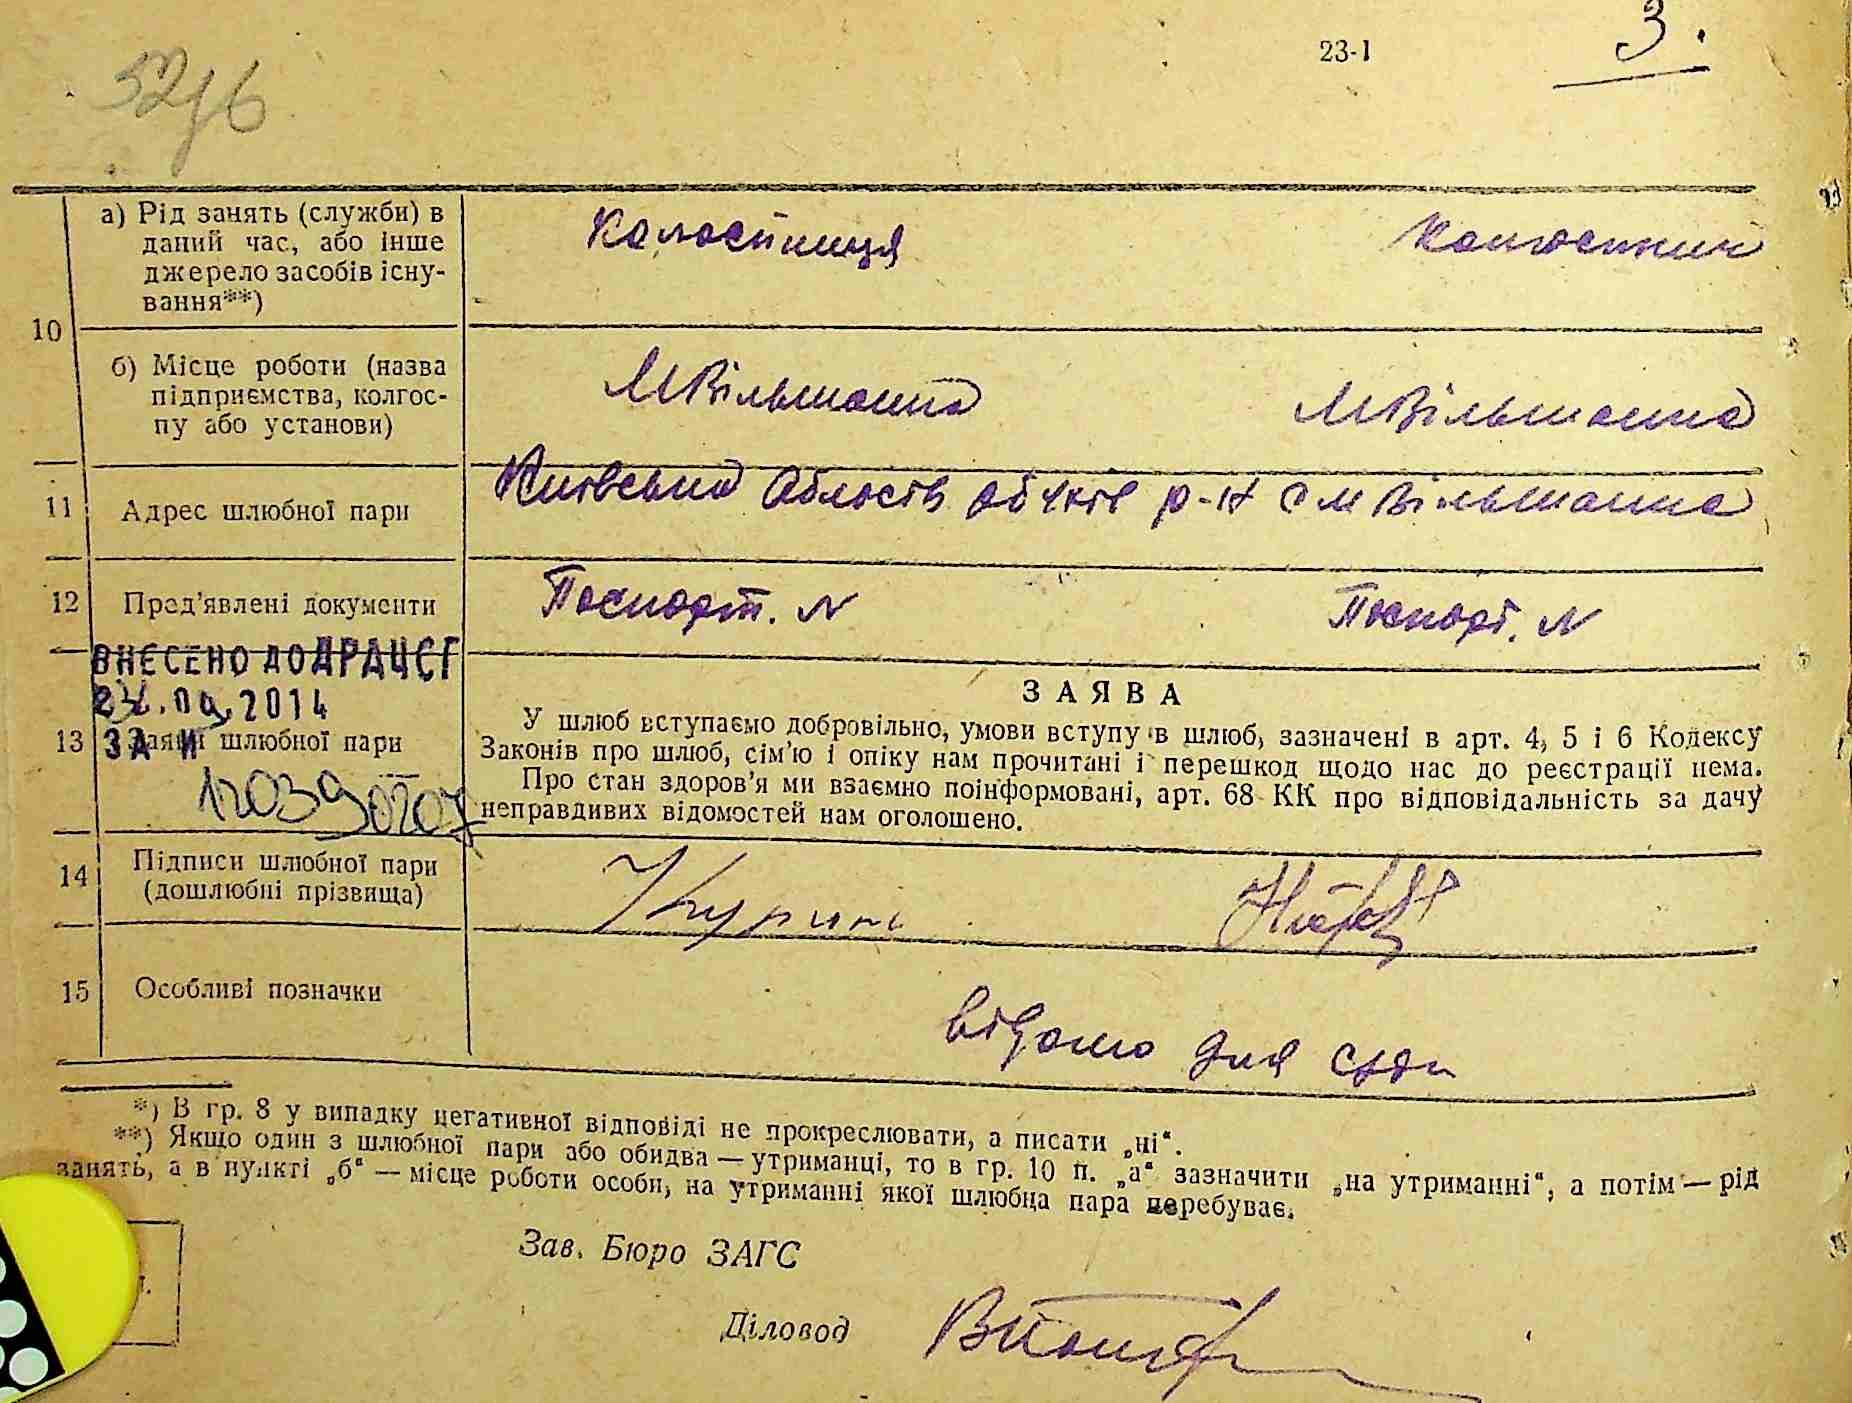 23-1 3.
10
а) Рід занять (служби) в
даний час, або інше
джерело засобів існу-
вання**)
Колгоспниця Колгоспник
б) Місце роботи (назва
підприємства, колгос-
пу або установи)
МВільшанка МВільшанка
11 Адрес шлюбної пари
Київська Область р-н С М Вільшанка
12 Пред'явлені документи Паспорт. N Паспорт. N
ВНЕСЕНО ДО ДРАЦСГ
.09.2014
ЗА И
13 Заява шлюбної пари
ЗАЯВА
У шлюб вступаємо добровільно, умови вступу в шлюб, зазначені в арт. 4, 5 і 6 Кодексу
Законів про шлюб, сім'ю і опіку нам прочитані і перешкод щодо нас до реєстрації нема.
Про стан здоров'я ми взаємно поінформовані, арт. 68 КК про відповідальність за дачу
неправдивих відомостей нам оголошено.
14 Підписи шлюбної пари
(дошлюбні прізвища)
15 Особливі позначки
відомо для
*) В гр. 8 у випадку негативної відповіді не прокреслювати, а писати „ні“.
**) Якщо один з шлюбної пари або обидва — утриманці, то в гр. 10 п. „а“ зазначити „на утриманні“, а потім — рід
занять, а в пункті „б“ — місце роботи особи, на утриманні якої шлюбна пара перебуває.
Зав. Бюро ЗАГС
Діловод